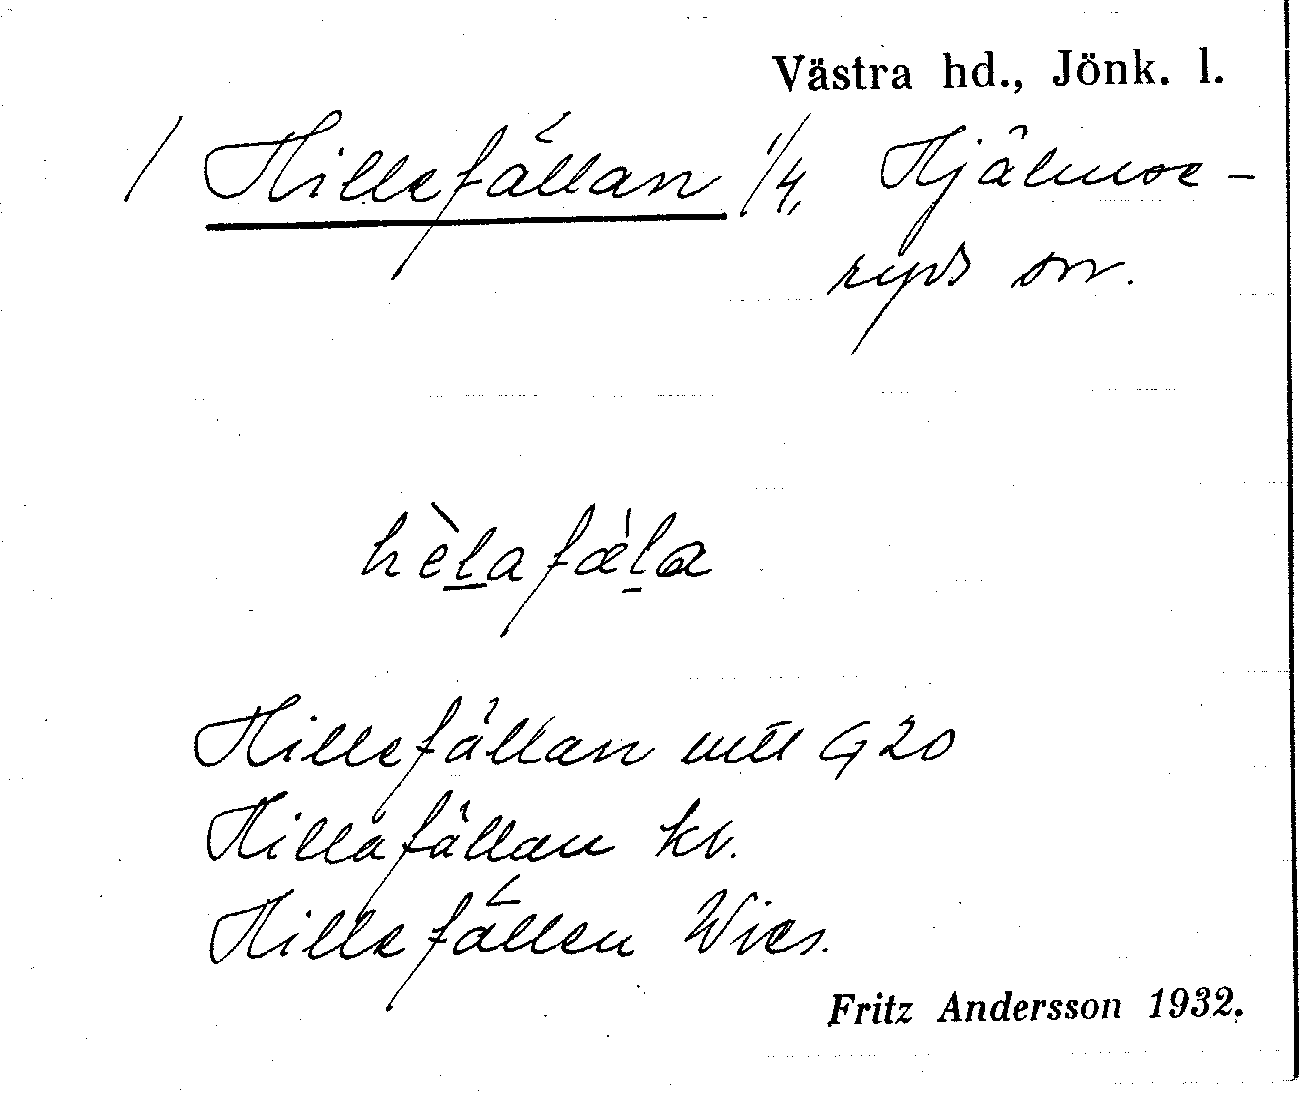 Västra hd., Jönk. l.
/ Hillefällan 1/4, Hjälmse-
ryds sn.
hèlafǽla
Hillefällan mtl G 20
Hillåfällan kr.
Hillefällen Wies.
Fritz Andersson 1932.